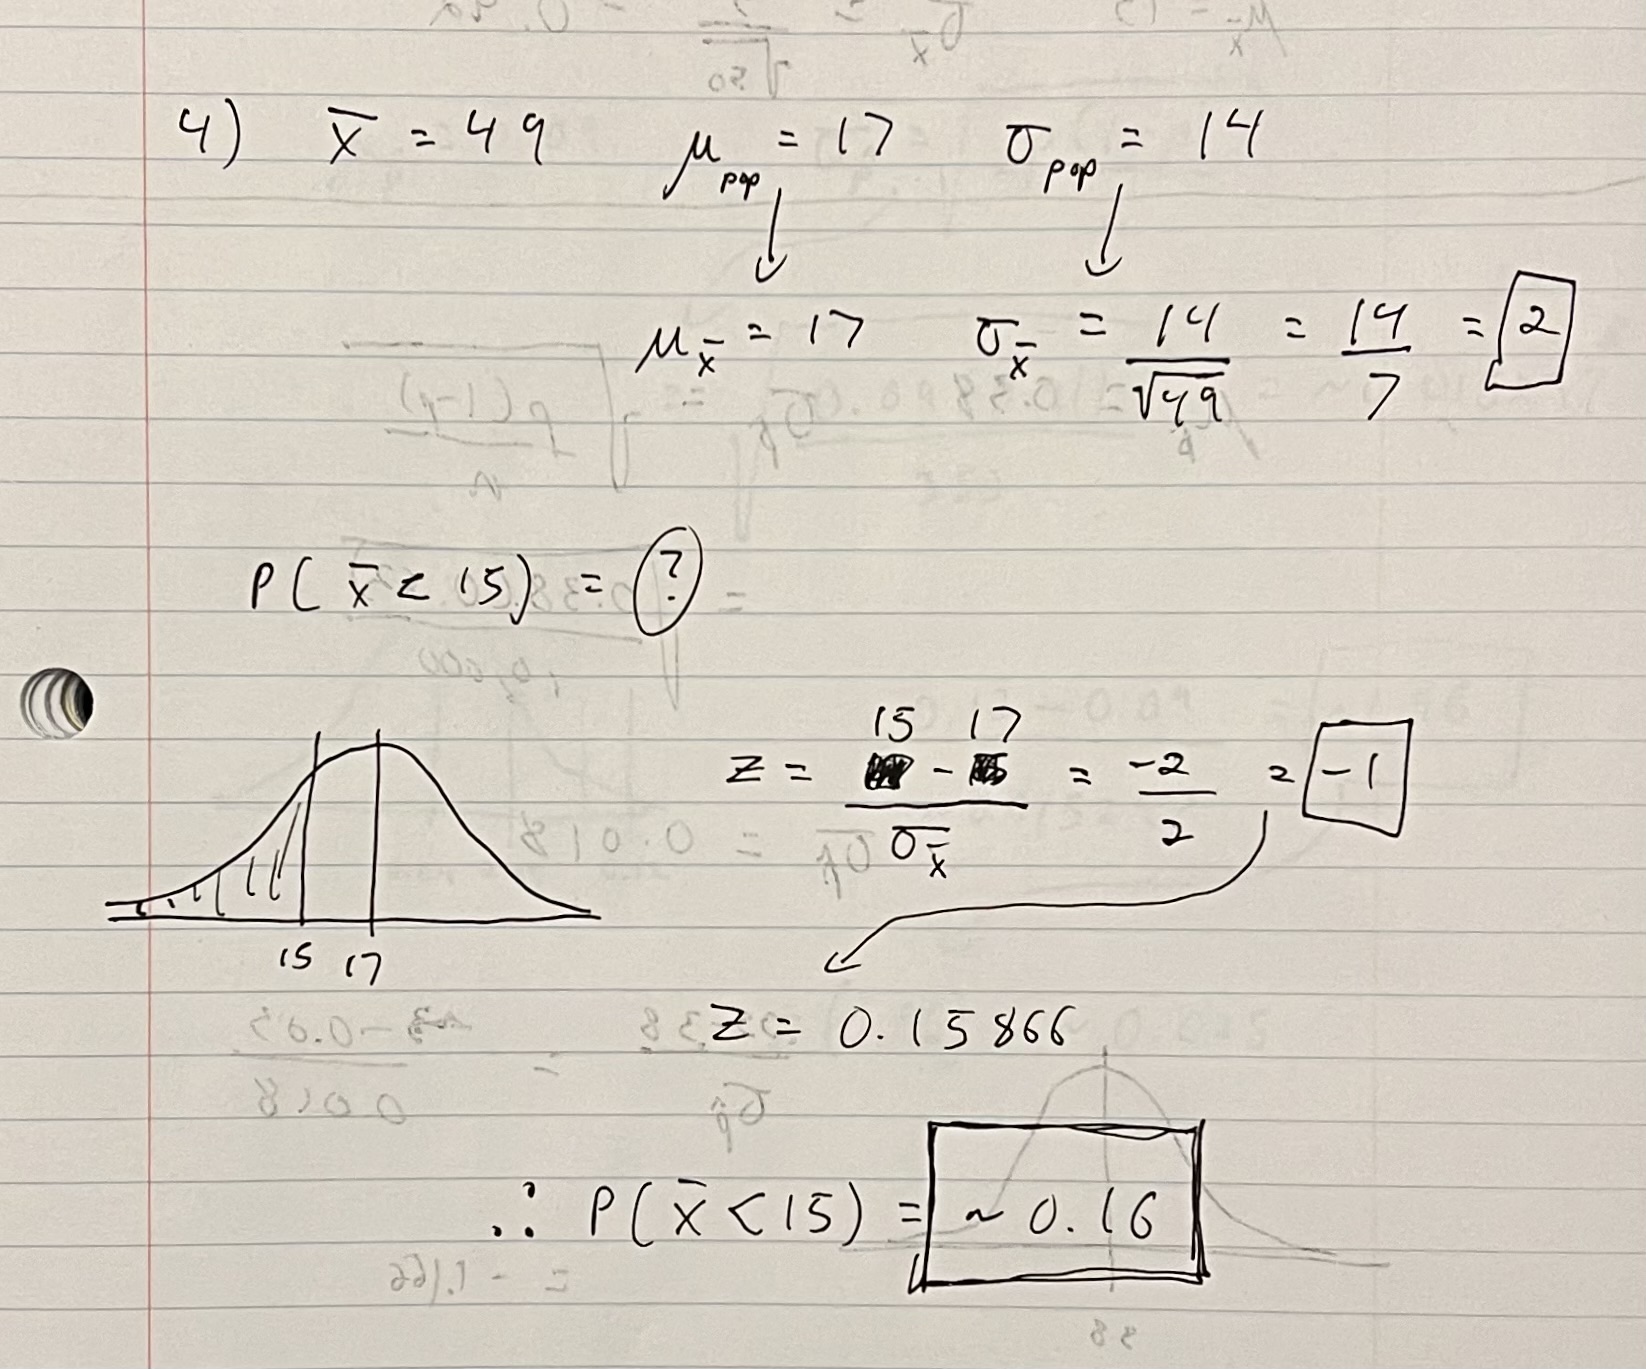 4) x̄ = 49 μpop = 17 σpop = 14
μx̄ = 17 σx̄ = 14/√49 = 14/7 = 2
P( x̄ < 15) = ?
15 17
z = - / σx̄ = -2/2 = -1
15 17
z = 0.15866
∴ P( x̄ < 15) = ~ 0.16